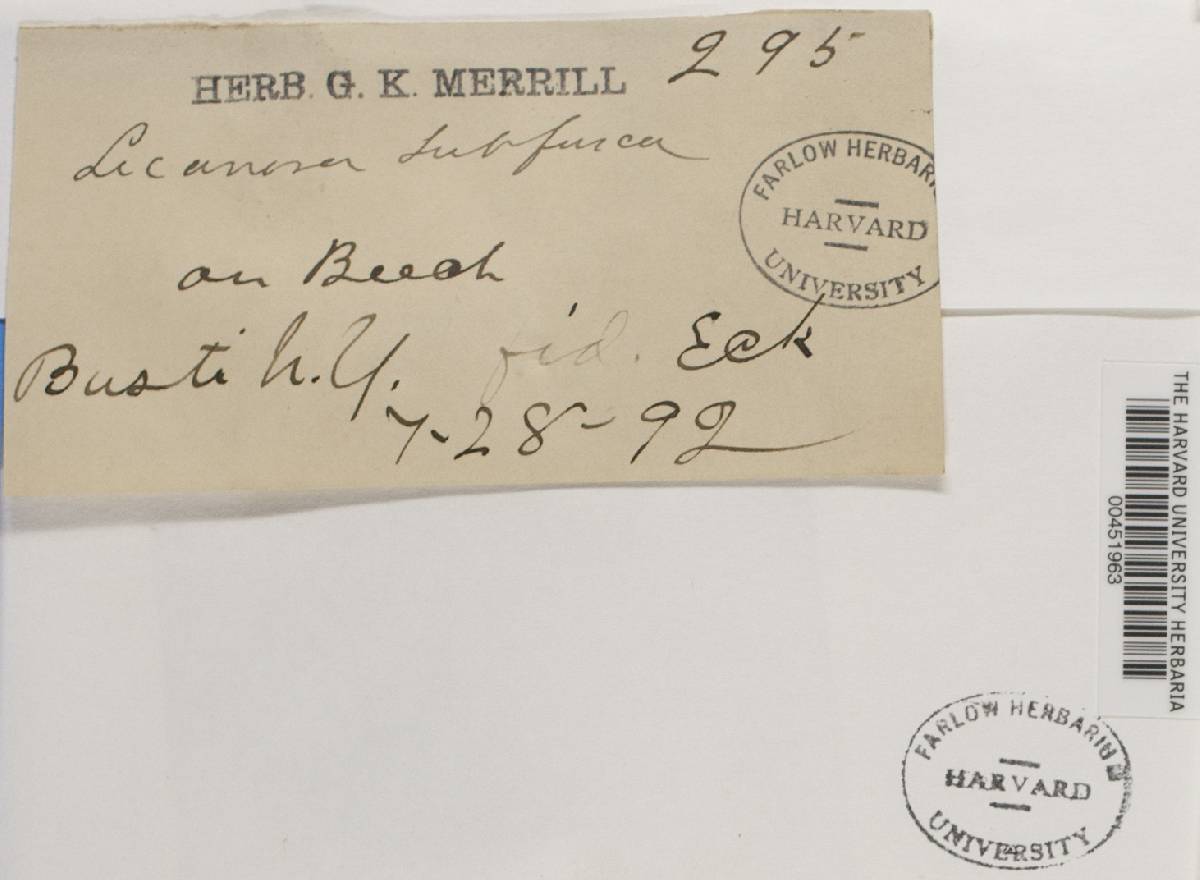 295
HERB. G. K. MERRILL
Lecanora subfusca
FARLOW HERBARI
HARVARD
UNIVERSITY
on Beech
Busti N.Y. fid. Eck
7-28-92
THE HARVARD UNIVERSITY HERBARIA
00451963
FARLOW HERBARIUM
HARVARD
UNIVERSITY